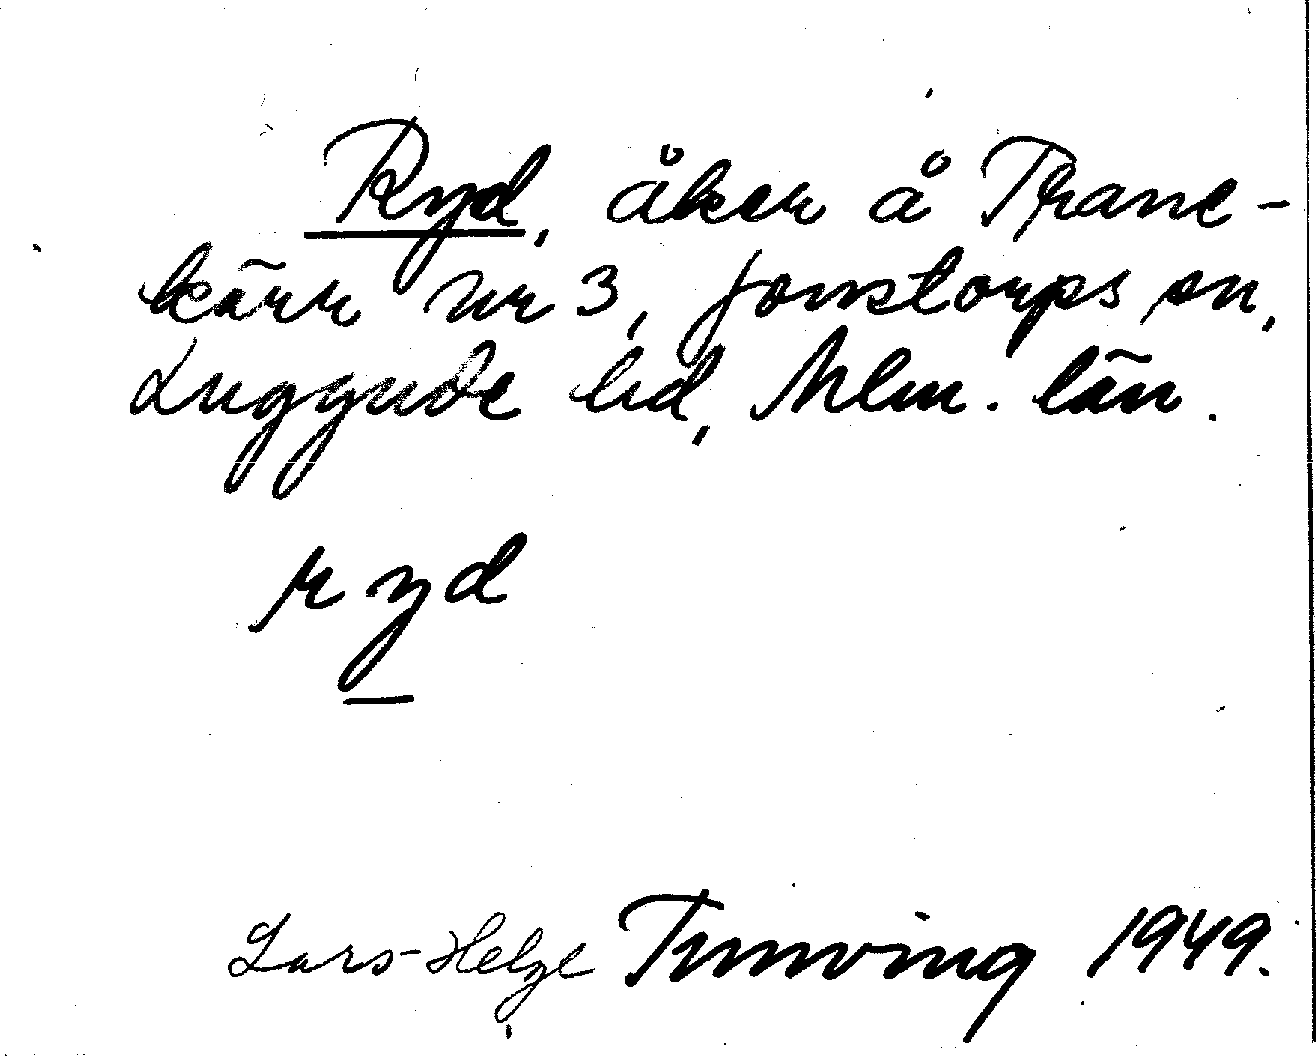 Ryd, åker å Trane-
kärr nr 3, Jonstorps sn,
Luggude hd, Mlm. län.
ryd
Lars-Helge Tunving 1949.